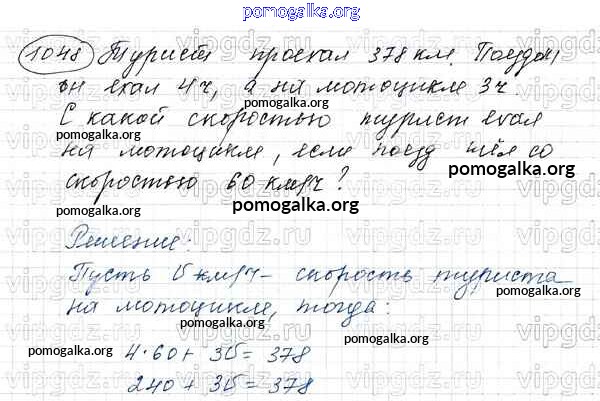 pomogalka.org
1048 Турист проехал 378 км. Поездом
он ехал 4ч, а на мотоцикле 3ч
pomogalka.org pomogalka.org
С какой скоростью турист ехал
на мотоцикле, если поезд шёл со
pomogalka.org
скоростью 60 км/ч?
pomogalka.org
Решение:
Пусть v км/ч - скорость туриста
на мотоцикле, тогда:
pomogalka.org
pomogalka.org
4·60 + 3v = 378
pomogalka.org
240 + 3v = 378